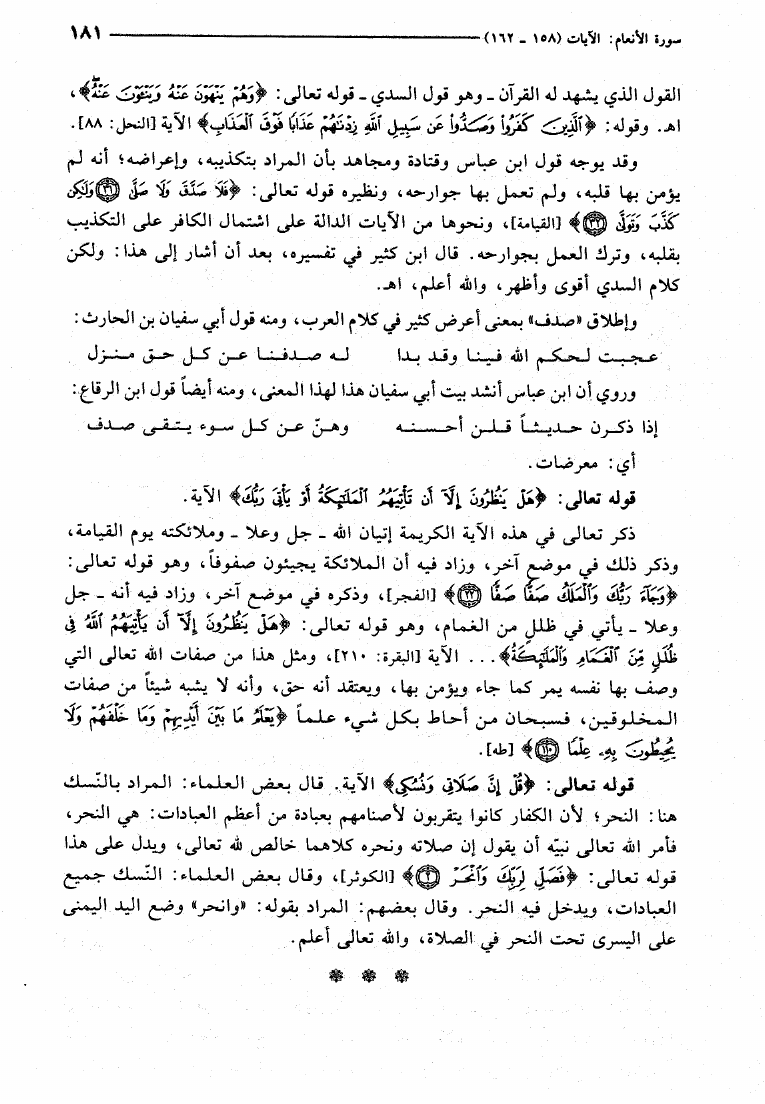 سورة الأنعام: الآيات (١٥٨ ـ ١٦٢) ١٨١
القول الذي يشهد له القرآن ـ وهو قول السدي ـ قوله تعالى: ﴿وَهُمْ يَنْهَوْنَ عَنْهُ وَيَنْـَٔوْنَ عَنْهُ﴾،
اهـ. وقوله: ﴿ٱلَّذِينَ كَفَرُوا۟ وَصَدُّوا۟ عَن سَبِيلِ ٱللَّهِ زِدْنَٰهُمْ عَذَابًا فَوْقَ ٱلْعَذَابِ﴾ الآية [النحل: ٨٨].
وقد يوجه قول ابن عباس وقتادة ومجاهد بأن المراد بتكذيبه، وإعراضه؛ أنه لم
يؤمن بها قلبه، ولم تعمل بها جوارحه، ونظيره قوله تعالى: ﴿فَلَا صَدَّقَ وَلَا صَلَّىٰ ﴿٣١﴾ وَلَٰكِن
كَذَّبَ وَتَوَلَّىٰ ﴿٣٢﴾﴾ [القيامة]، ونحوها من الآيات الدالة على اشتمال الكافر على التكذيب
بقلبه، وترك العمل بجوارحه. قال ابن كثير في تفسيره، بعد أن أشار إلى هذا: ولكن
كلام السدي أقوى وأظهر، والله أعلم، اهـ.
وإطلاق «صدف» بمعنى أعرض كثير في كلام العرب، ومنه قول أبي سفيان بن الحارث:
عجبت لحكم الله فينا وقد بدا له صدفنا عن كل حق منزل
وروي أن ابن عباس أنشد بيت أبي سفيان هذا لهذا المعنى، ومنه أيضاً قول ابن الرقاع:
إذا ذكرن حديثاً قلن أحسنه وهنّ عن كل سوء يتقى صدف
أي: معرضات.
قوله تعالى: ﴿هَلْ يَنظُرُونَ إِلَّآ أَن تَأْتِيَهُمُ ٱلْمَلَٰٓئِكَةُ أَوْ يَأْتِىَ رَبُّكَ﴾ الآية.
ذكر تعالى في هذه الآية الكريمة إتيان الله ـ جل وعلا ـ وملائكته يوم القيامة،
وذكر ذلك في موضع آخر، وزاد فيه أن الملائكة يجيئون صفوفاً، وهو قوله تعالى:
﴿وَجَآءَ رَبُّكَ وَٱلْمَلَكُ صَفًّا صَفًّا ﴿٢٢﴾﴾ [الفجر]، وذكره في موضع آخر، وزاد فيه أنه ـ جل
وعلا ـ يأتي في ظلل من الغمام، وهو قوله تعالى: ﴿هَلْ يَنظُرُونَ إِلَّآ أَن يَأْتِيَهُمُ ٱللَّهُ فِى
ظُلَلٍ مِّنَ ٱلْغَمَامِ وَٱلْمَلَٰٓئِكَةُ﴾... الآية [البقرة: ٢١٠]، ومثل هذا من صفات الله تعالى التي
وصف بها نفسه يمر كما جاء ويؤمن بها، ويعتقد أنه حق، وأنه لا يشبه شيئاً من صفات
المخلوقين، فسبحان من أحاط بكل شيء علماً ﴿يَعْلَمُ مَا بَيْنَ أَيْدِيهِمْ وَمَا خَلْفَهُمْ وَلَا
يُحِيطُونَ بِهِۦ عِلْمًا ﴿١١٠﴾﴾ [طه].
قوله تعالى: ﴿قُلْ إِنَّ صَلَاتِى وَنُسُكِى﴾ الآية. قال بعض العلماء: المراد بالنّسك
هنا: النحر؛ لأن الكفار كانوا يتقربون لأصنامهم بعبادة من أعظم العبادات: هي النحر،
فأمر الله تعالى نبيّه أن يقول إن صلاته ونحره كلاهما خالص لله تعالى، ويدل على هذا
قوله تعالى: ﴿فَصَلِّ لِرَبِّكَ وَٱنْحَرْ ﴿٢﴾﴾ [الكوثر]، وقال بعض العلماء: النّسك جميع
العبادات، ويدخل فيه النحر. وقال بعضهم: المراد بقوله: «وانحر» وضع اليد اليمنى
على اليسرى تحت النحر في الصلاة، والله تعالى أعلم.